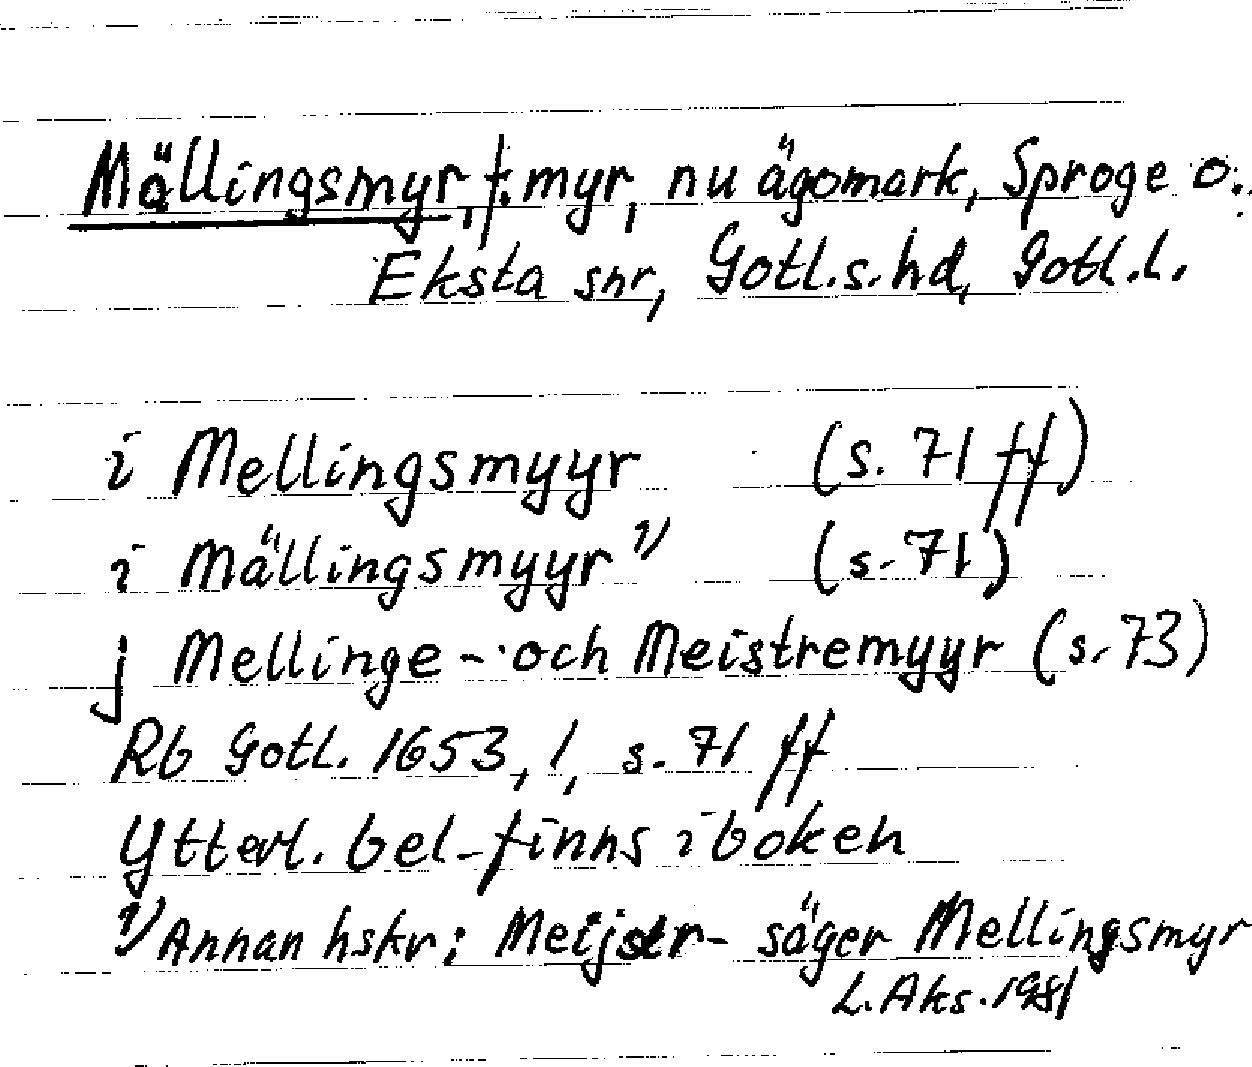 Mällingsmyr, f. myr, nu ägomark, Sproge o.
Eksta snr, Gotl.s.hd, Gotl.l.
i Mellingsmyyr (s. 71 ff)
i Mällingsmyyr 1) (s. 71)
j Mellinge- och Meistremyyr (s. 73)
Rb Gotl. 1653, 1, s. 71 ff
Ytterl. bel. finns i boken
1) Annan hskr; Meijstr- säger Mellingsmyr
L. Aks. 1981